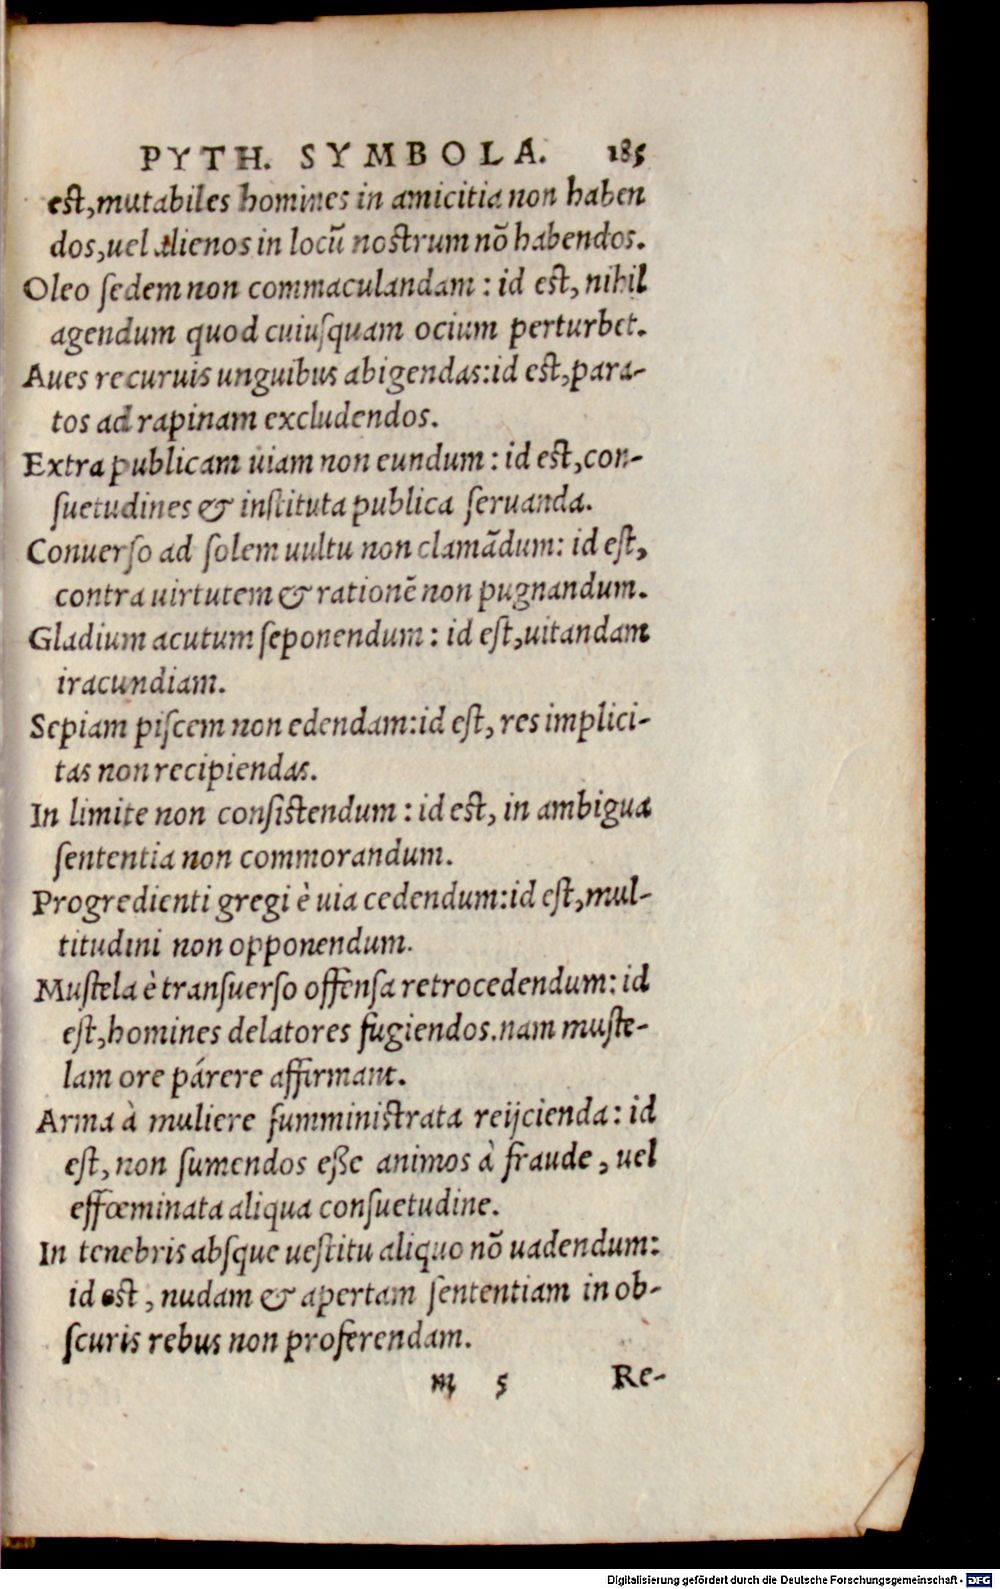 PYTH. SYMBOLA. 185
est, mutabiles homines in amicitia non haben
dos, uel alienos in locū nostrum nō habendos.
Oleo ſedem non commaculandam : id est, nihil
agendum quod cuiuſquam ocium perturbet.
Aues recuruis unguibus abigendas: id est, para-
tos ad rapinam excludendos.
Extra publicam uiam non eundum : id est, con-
ſuetudines & inſtituta publica ſeruanda.
Conuerſo ad ſolem uultu non clamādum: id eſt,
contra uirtutem & rationē non pugnandum.
Gladium acutum ſeponendum : id eſt, uitandam
iracundiam.
Sepiam piſcem non edendam: id eſt, res implici-
tas non recipiendas.
In limite non conſistendum : id est, in ambigua
ſententia non commorandum.
Progredienti gregi è uia cedendum: id eſt, mul-
titudini non opponendum.
Muſtela è tranſuerſo offenſa retrocedendum: id
eſt, homines delatores fugiendos. nam muſte-
lam ore párere affirmant.
Arma à muliere ſumministrata reijcienda: id
eſt, non ſumendos eſſe animos à fraude, uel
effœminata aliqua conſuetudine.
In tenebris abſque ueſtitu aliquo nō uadendum:
id est, nudam & apertam ſententiam in ob-
ſcuris rebus non proferendam.
m 5 Re-
Digitalisierung gefördert durch die Deutsche Forschungsgemeinschaft - DFG